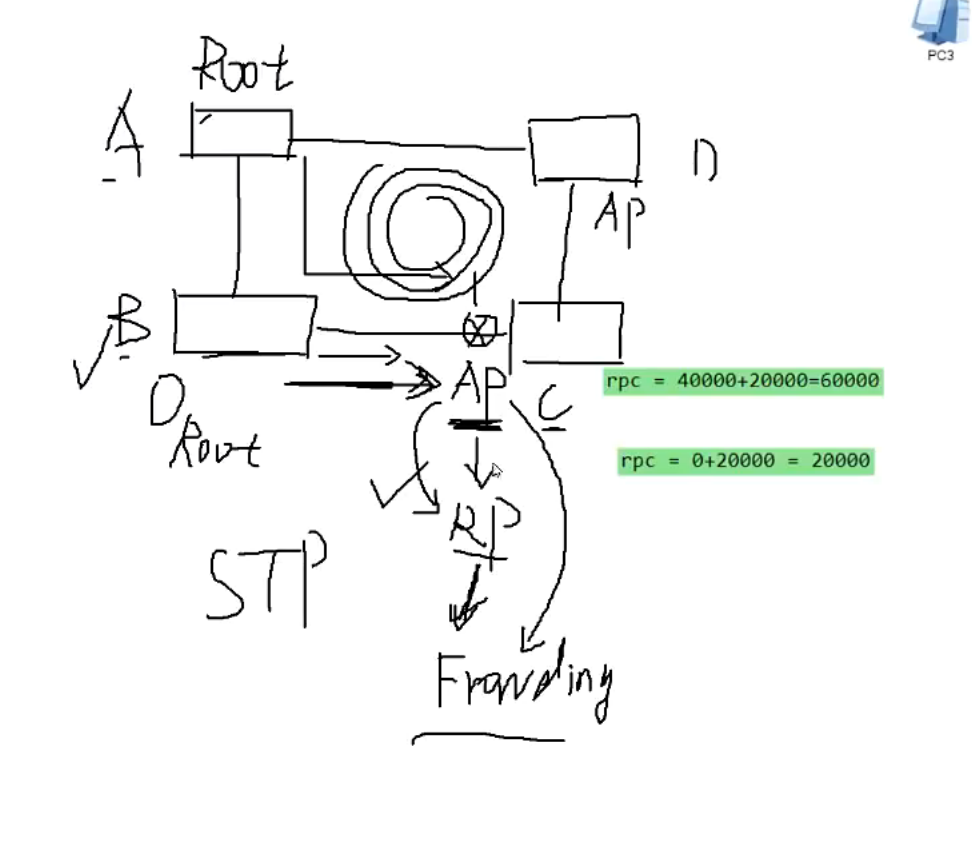 PC3
Root
A
D
AP
B
AP
C
rpc = 40000+20000=60000
D
Root
rpc = 0+20000 = 20000
RP
STP
Frowrding